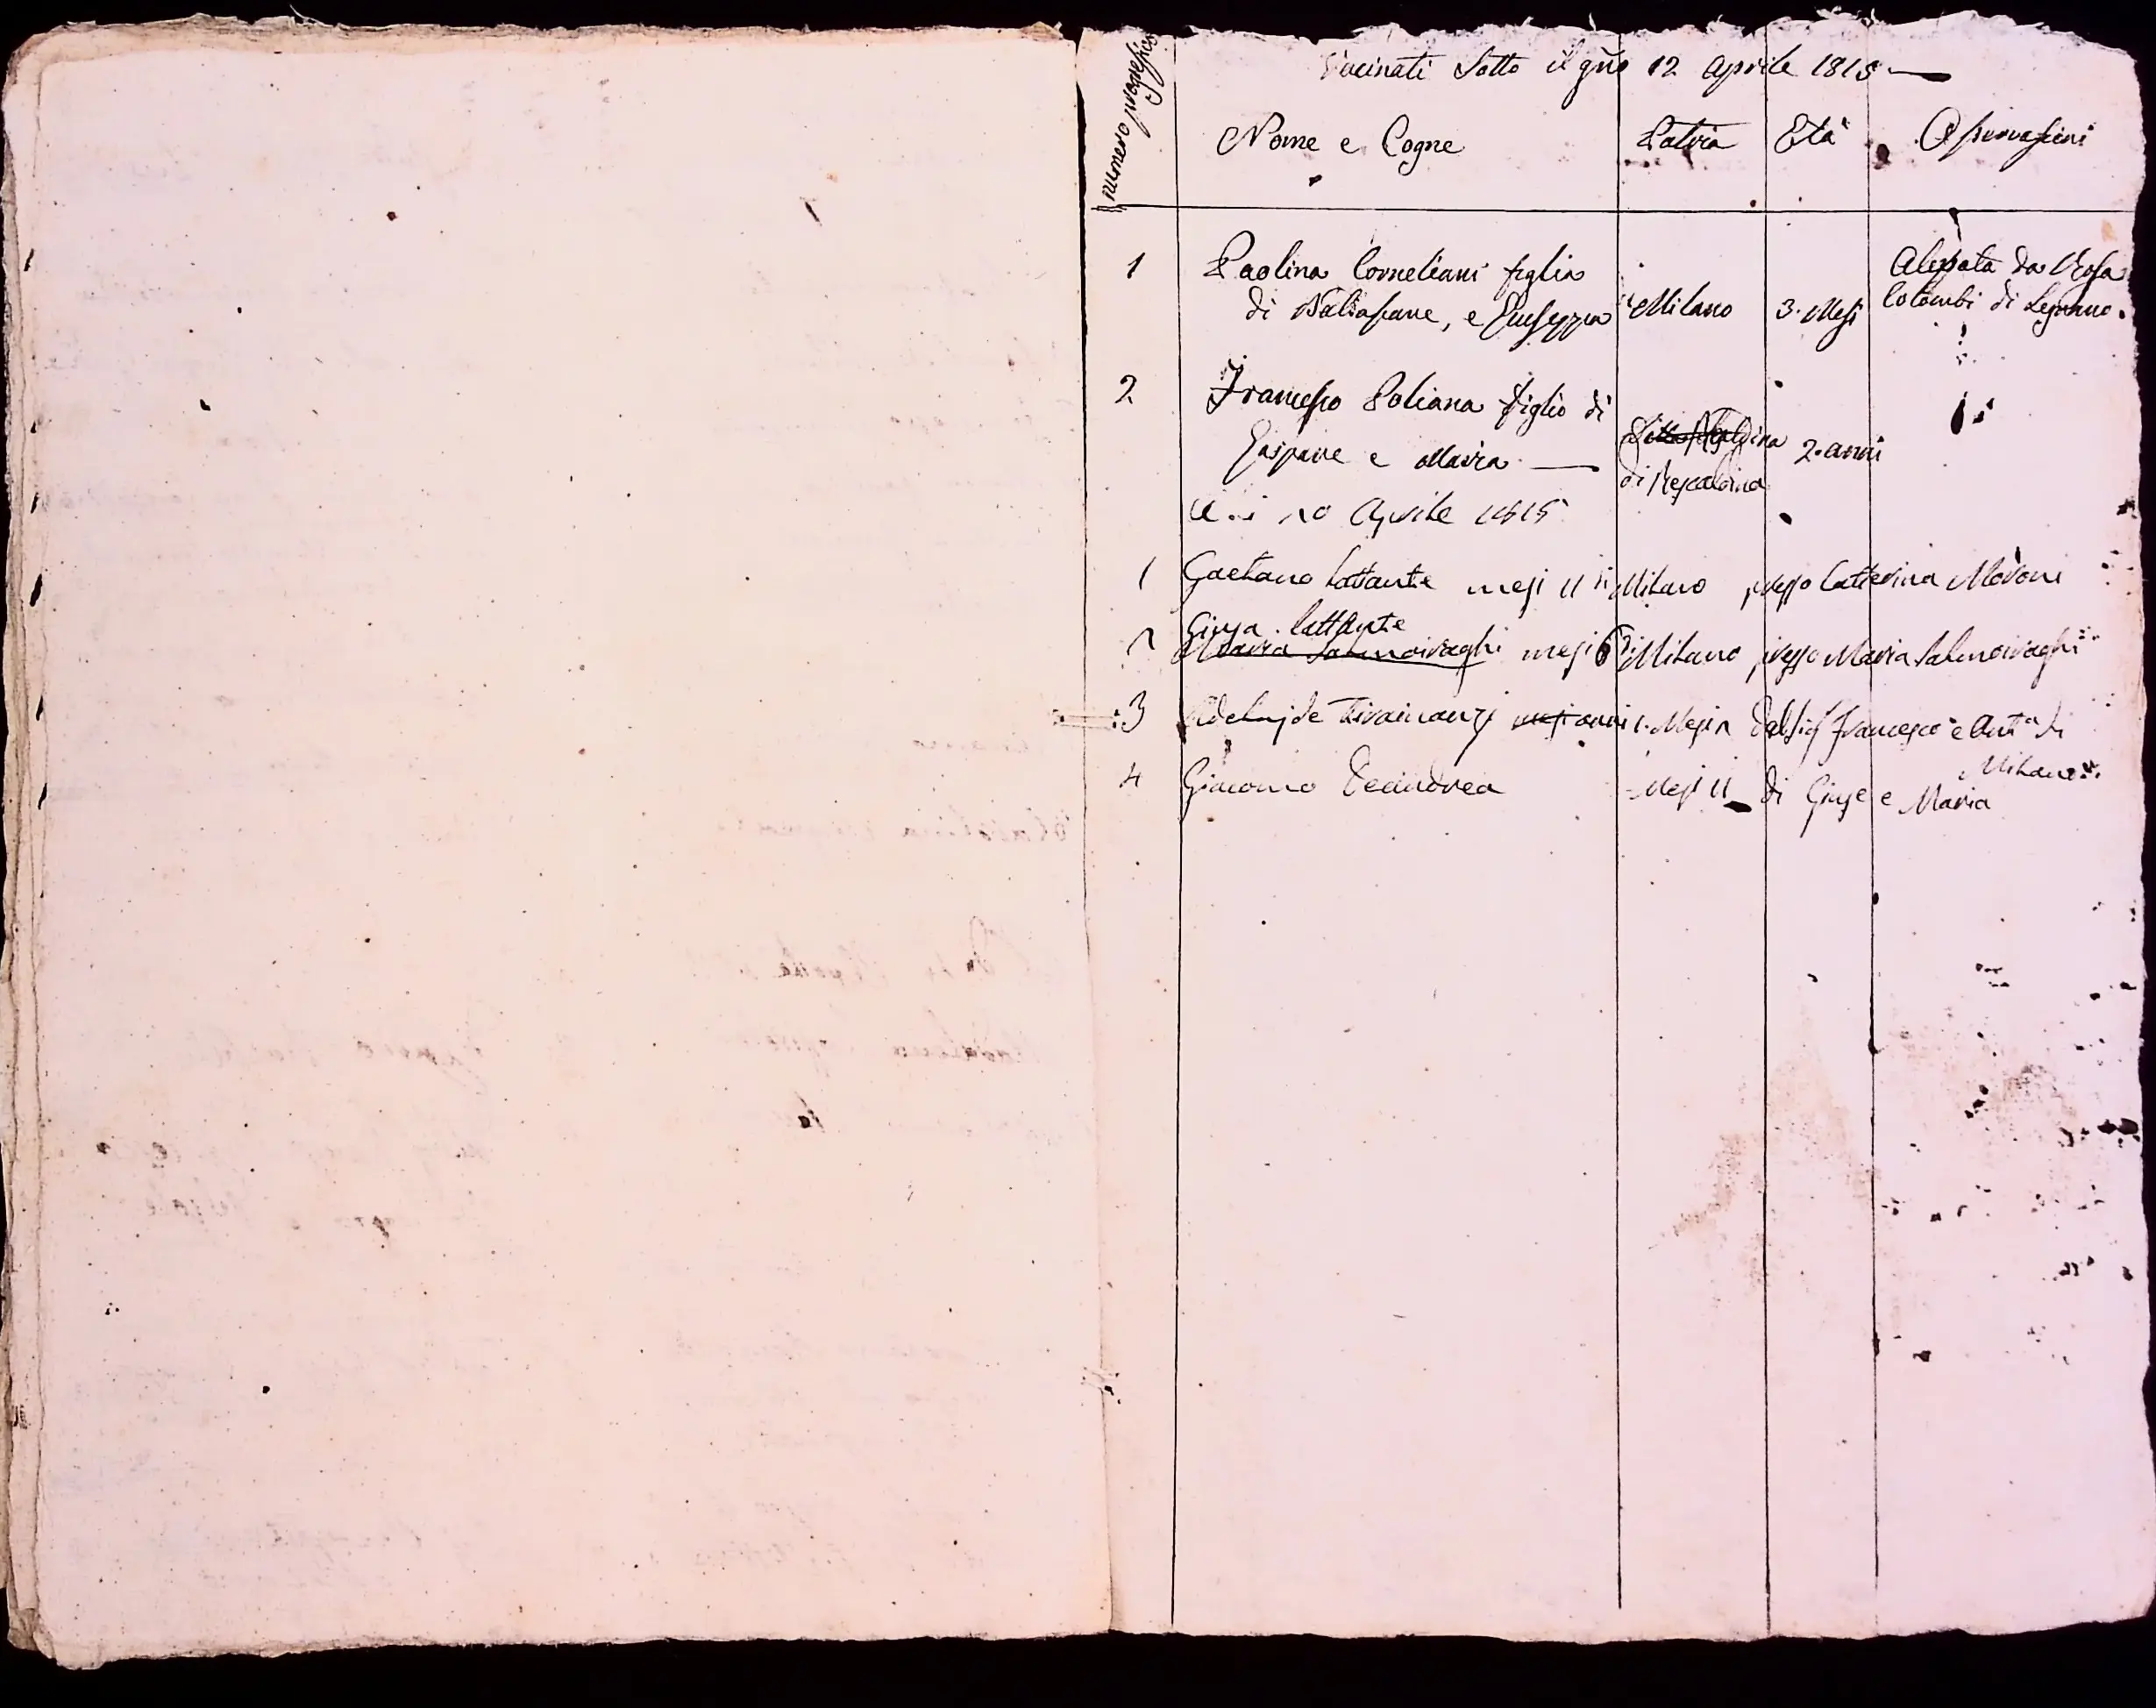 numero progressivo
Vacinati Sotto il gno 12 Aprile 1815
Nome e Cogne Patria Età Osservazioni
1 Paolina Corneliani figlia Alexata da Rosa
di Baltassare, e Giuseppa di Milano 3. Mesi Colombi di Legnano.
2 Francesco Poliana figlio di
Gaspare e Maria 2. anni
di Rescaldina
Aprile 1815
1 Gaetano lattante mesi 11 di Milano presso Catterina Moroni
Giusa. lattante
2 Maria Salmoiraghi mesi 6 di Milano presso Maria Salmoiraghi
3 Adelajde mesi anni Mesi Francesco e Anta di
Milano
4 Giacomo Mesi 11 di Giuse e Maria